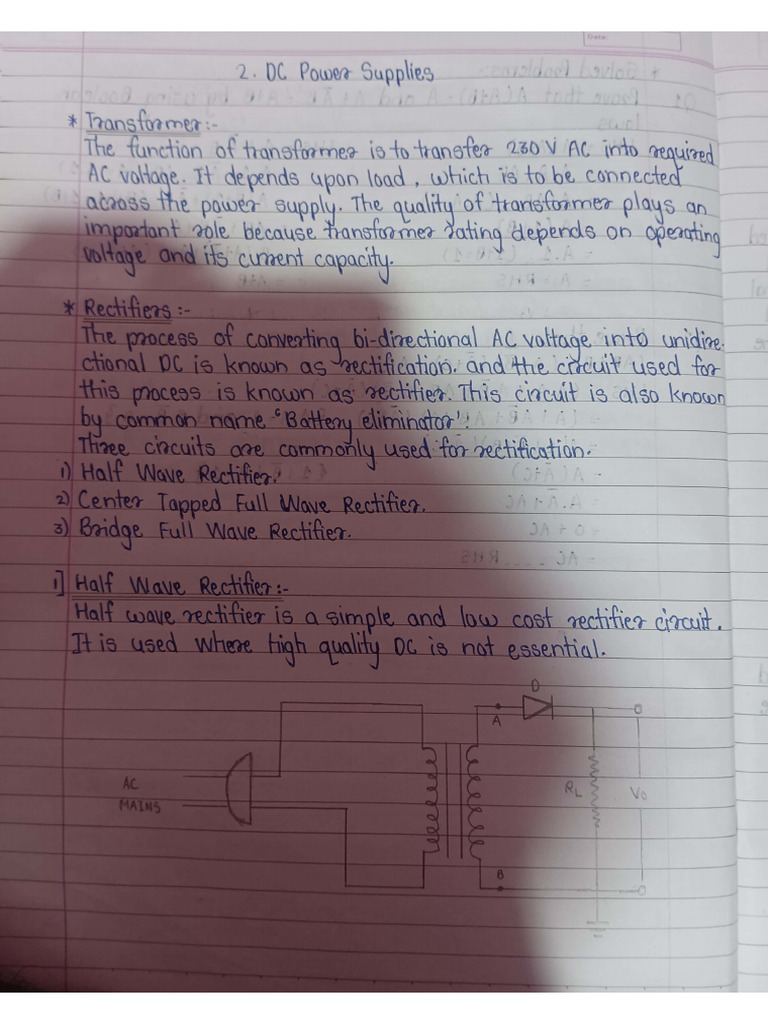 Date:
2. DC Power Supplies
* Transformer:-
The function of transformer is to transfer 230 V AC into required
AC voltage. It depends upon load, which is to be connected
across the power supply. The quality of transformer plays an
important role because transformer rating depends on operating
voltage and its current capacity.
* Rectifiers:-
The process of converting bi-directional AC voltage into unidire-
ctional DC is known as rectification. and the circuit used for
this process is known as rectifier. This circuit is also known
by common name 'Battery eliminator'.
Three circuits are commonly used for rectification.
1) Half Wave Rectifier.
2) Center Tapped Full Wave Rectifier.
3) Bridge Full Wave Rectifier.
1] Half Wave Rectifier:-
Half wave rectifier is a simple and low cost rectifier circuit.
It is used where high quality DC is not essential.
D
A
AC
MAINS
RL
Vo
B